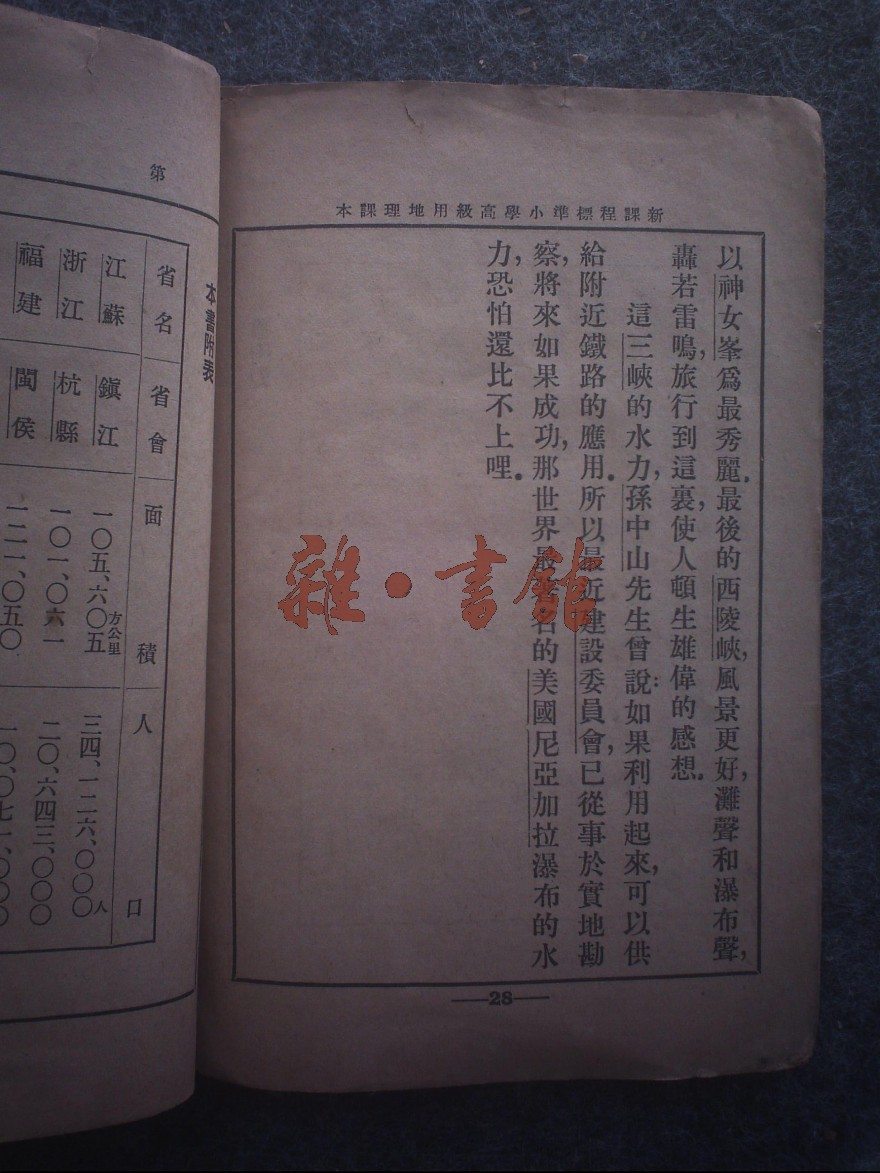 新課程標準小學高級用地理課本
以神女峯爲最秀麗.最後的西陵峽,風景更好,灘聲和瀑布聲,
轟若雷鳴,旅行到這裏,使人頓生雄偉的感想.
這三峽的水力,孫中山先生曾說:如果利用起來,可以供
給附近鐵路的應用.所以最近建設委員會,已從事於實地勘
察,將來如果成功,那世界最名的美國尼亞加拉瀑布的水
力,恐怕還比不上哩.
28
雜·書館
第
本書附表
省名 省會 面積 人口
江蘇 鎭江 一〇五、六〇五方公里 三四、一二六、〇〇〇人
浙江 杭縣 一〇一、〇六一 二〇、六四三、〇〇〇
福建 閩侯 一二一、〇五〇 一〇、〇七一、〇〇〇